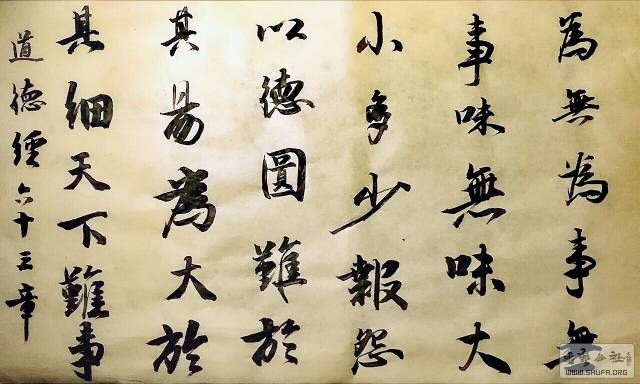 為無為事無
事味無味大
小多少報怨
以德圓難於
其易為大於
其細天下難事
道德經六十三章
WWW.SHUFA.ORG